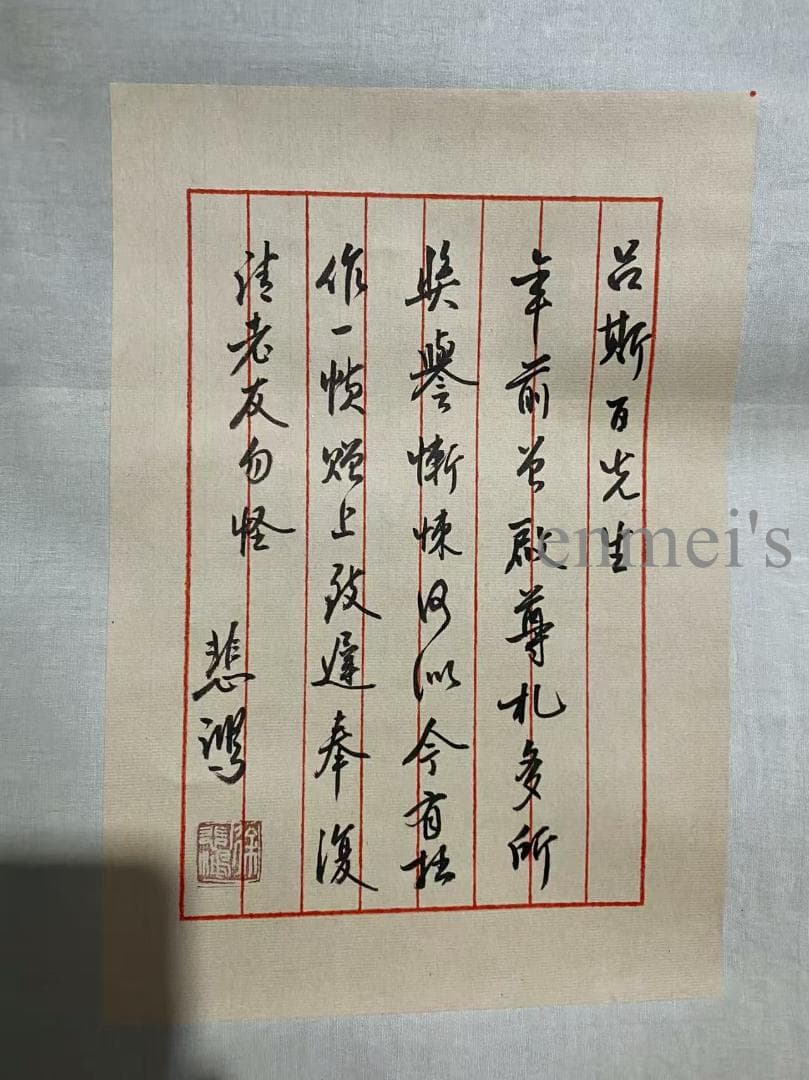 吕斯百先生
年前曾啟尊札多所
獎譽慚悚何似今有拙
作一幀赠上致遲奉復
请老友勿怪
悲鸿
徐悲鴻
enmei's